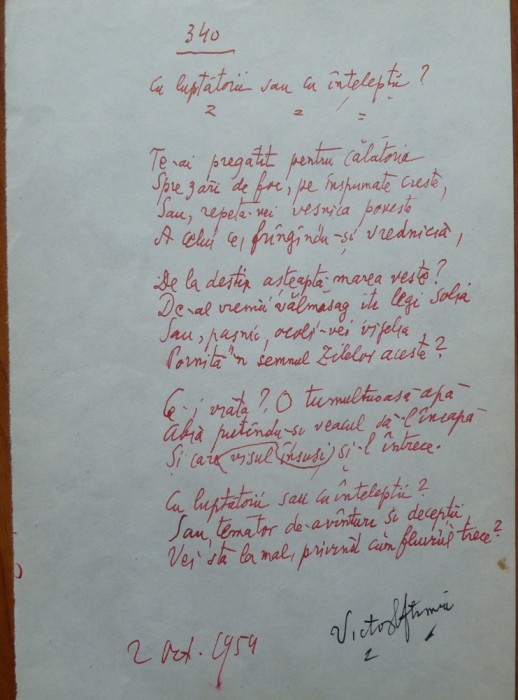 340
Cu luptătorii sau cu înțelepții?
Te-ai pregătit pentru călătoria
Spre zări de foc, pe înspumate creste,
Sau, repeta-vei veșnica poveste
A celui ce, frîngîndu-și vrednicia,
De la destin așteaptă marea veste?
De-al vremii vălmășag iți legi solia
Sau, pașnic, ocoli-vei vijelia
Pornită'n semnul zilelor aceste?
Ce-i viața? O tumultuoasă apă
Abia putîndu-și veacul să-l încapă
Și care visul însuși și-l întrece.
Cu luptătorii sau cu înțelepții?
Sau, temător de avînturi și decepții,
Vei sta la mal, privind cum fluviul trece?
2 Oct. 1954
Victor Eftimiu